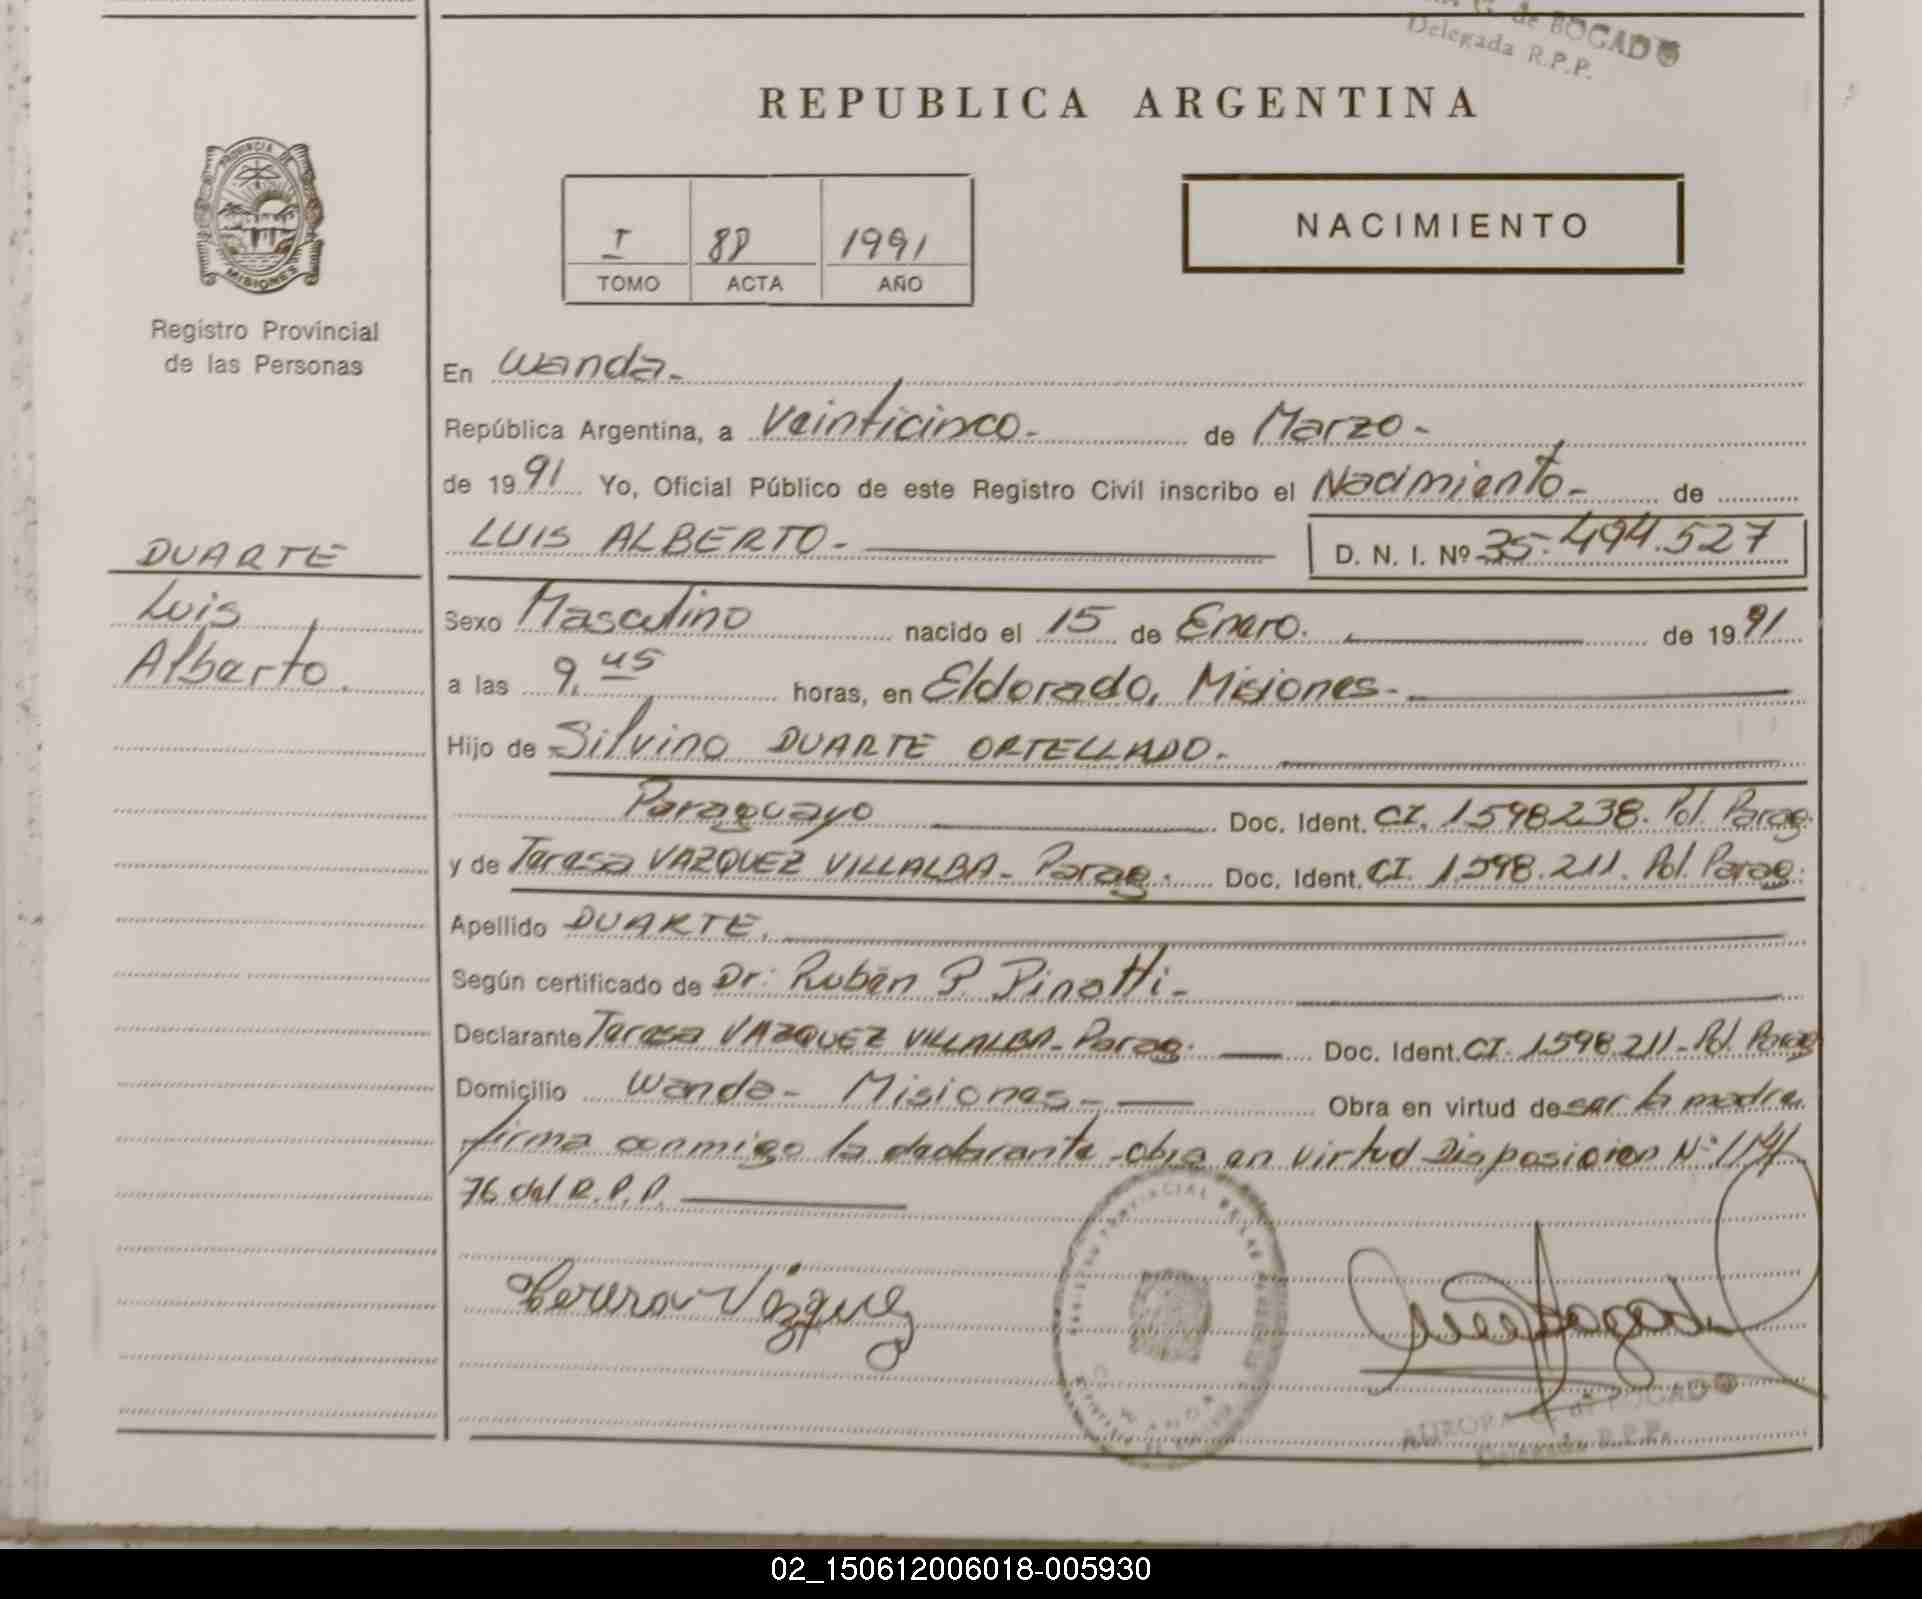 de BOGADO
Delegada R.P.P.
REPUBLICA ARGENTINA
PROVINCIA DE
MISIONES
Registro Provincial
de las Personas
I 88 1991
TOMO ACTA AÑO
NACIMIENTO
En Wanda-
República Argentina, a Veinticinco- de Marzo-
de 1991 Yo, Oficial Público de este Registro Civil inscribo el Nacimiento- de
LUIS ALBERTO- D. N. I. Nº 35.494.527
DUARTE
Luis
Alberto.
Sexo Masculino nacido el 15 de Enero. de 1991
a las 9,45 horas, en Eldorado, Misiones-
Hijo de Silvino DUARTE ORTELLADO-
Paraguayo Doc. Ident. CI. 1598238. Pol. Parag.
y de Teresa VAZQUEZ VILLALBA- Parag. Doc. Ident. CI. 1.598.211. Pol. Parag.
Apellido DUARTE.
Según certificado de Dr: Rubén P. Pinatti-
Declarante Teresa VAZQUEZ VILLALBA- Parag. Doc. Ident. CI. 1.598.211- Pol. Parag
Domicilio Wanda- Misiones- Obra en virtud de ser la madre
firma conmigo la declarante-obra en virtud Disposicion Nº 114/
76 del R.P.P.
Teresa Vázquez
AURORA de BOGADO
Delegada R.P.P.
02_150612006018-005930